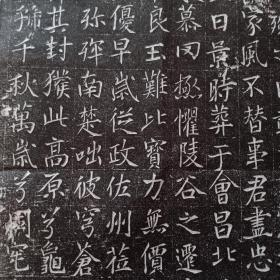 家風不替事君盡忠
日景時葬于會昌北
慕罔極懼陵谷之遷
良玉難比寶力無價
優早歲從政佐州蒞
弥弥南楚咄彼穹蒼
其封獲此高原兮龜
千秋萬歲兮宅